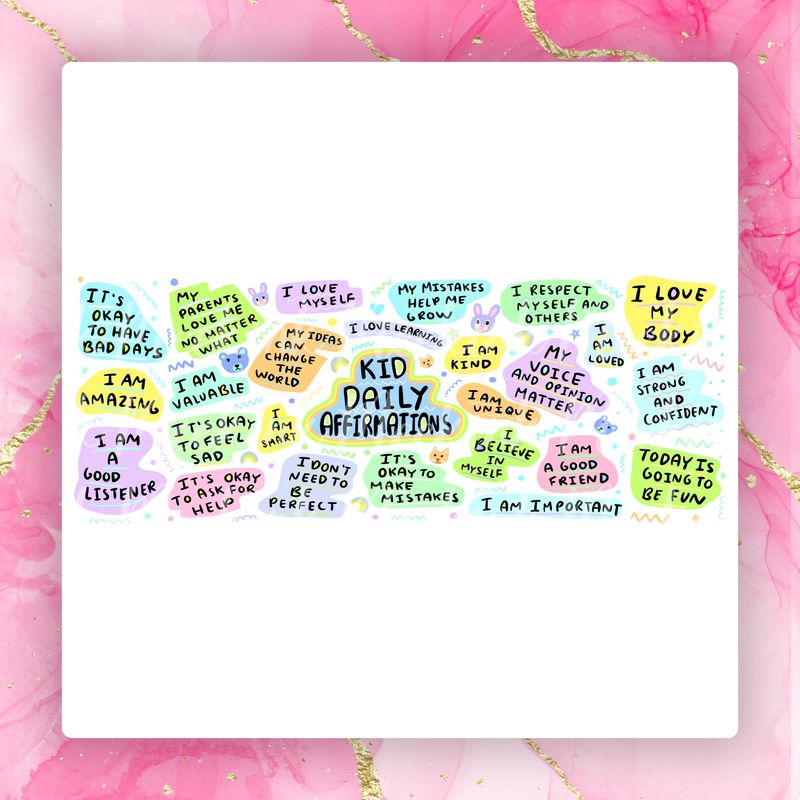 IT'S
OKAY
TO HAVE
BAD DAYS
MY
PARENTS
LOVE ME
NO MATTER
WHAT
I LOVE
MYSELF
MY MISTAKES
HELP ME
GROW
I RESPECT
MYSELF AND
OTHERS
I LOVE
MY
BODY
MY IDEAS
CAN
CHANGE
THE
WORLD
I LOVE LEARNING
I AM
KIND
MY
VOICE
AND OPINION
MATTER
I
AM
LOVED
I AM
AMAZING
I AM
VALUABLE
KID
DAILY
AFFIRMATIONS
I AM
UNIQUE
I AM
STRONG
AND
CONFIDENT
I AM
A
GOOD
LISTENER
IT'S OKAY
TO FEEL
SAD
I
AM
SMART
I
BELIEVE
IN
MYSELF
I AM
A GOOD
FRIEND
TODAY IS
GOING TO
BE FUN
IT'S OKAY
TO ASK FOR
HELP
I DON'T
NEED TO
BE
PERFECT
IT'S
OKAY TO
MAKE
MISTAKES
I AM IMPORTANT